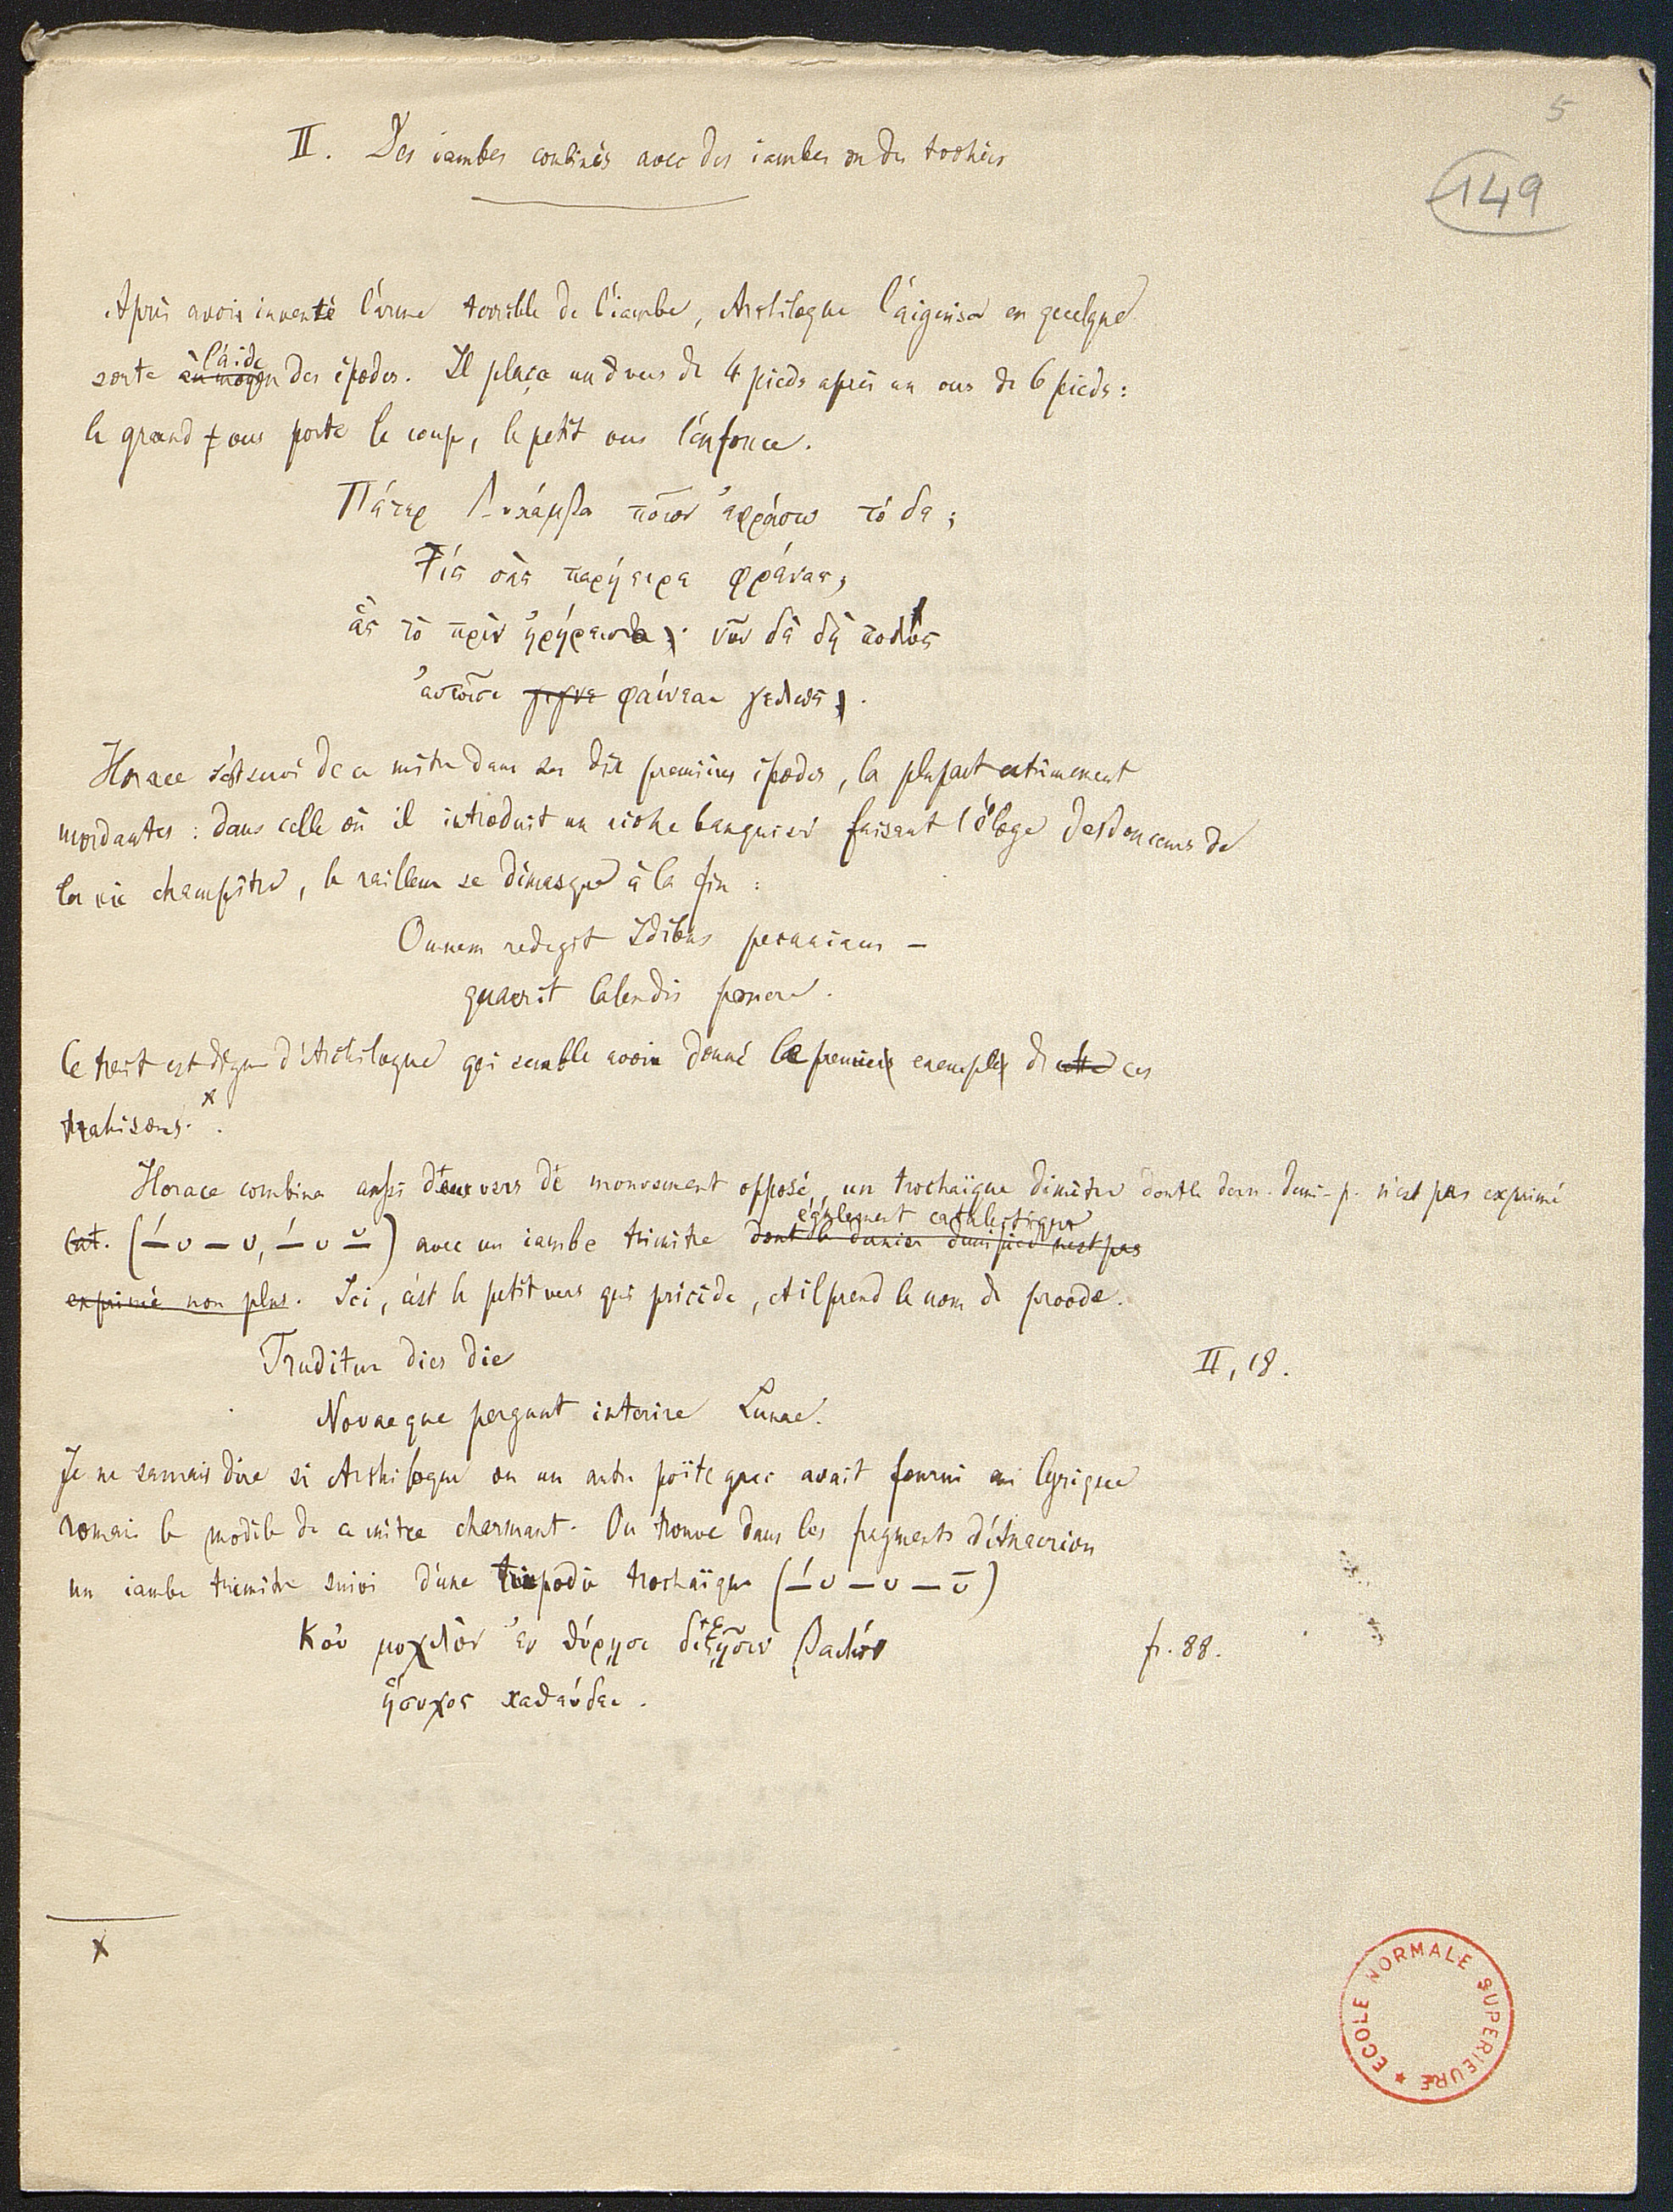 5
149
II. Des iambes combinés avec des iambes ou des trochées
Après avoir inventé l'arme terrible de l'iambe, Archiloque l'aiguisa en quelque
sorte à l'aide des épodes. Il plaça un vers de 4 pieds après un vers de 6 pieds :
le grand vers porte le coup, le petit vers l'enfonce.
Πάτερ Λυκάμβα ποῖον ἐφράσω τόδε;
Τίς σὰς παρήειρε φρένας;
ᾗς τὸ πρὶν ἠρήρεισθα · νῦν δὲ δὴ πολὺς
ἀστοῖσι φαίνεαι γέλως.
Horace s'est servi de ce mètre dans ses dix premières épodes, la plupart extrêmement
mordantes : dans celle où il introduit un riche banquier faisant l'éloge des douceurs de
la vie champêtre, le railleur se démasque à la fin :
Omnem redegit Idibus pecuniam –
quaerit Calendis ponere.
Ce trait est digne d'Archiloque qui semble avoir donné le premier exemple de ces
trahisons. x
Horace combina aussi deux vers de mouvement opposé, un trochaïque dimètre dont le dern. demi-p. n'est pas exprimé
(–́ υ – υ, –́ υ –) avec un iambe trimètre également catalectique
dont le dernier demi pied n'est pas
exprimé non plus. Ici, c'est le petit vers qui précède, et il prend le nom de proode.
Truditur dies die II, 18.
Novaeque pergunt interire Lunae.
Je ne saurais dire si Archiloque ou un autre poète grec avait fourni au lyrique
romain le modèle de ce mètre charmant. On trouve dans les fragments d'Anacréon
un iambe trimètre suivi d'une tripodie trochaïque (–́ υ – υ – υ)
Κοὐ μοχλὸν ἐν θύρῃσι διξῇσιν βαλὼν fr. 88.
ἥσυχος καθεύδει.
x
ECOLE NORMALE SUPERIEURE